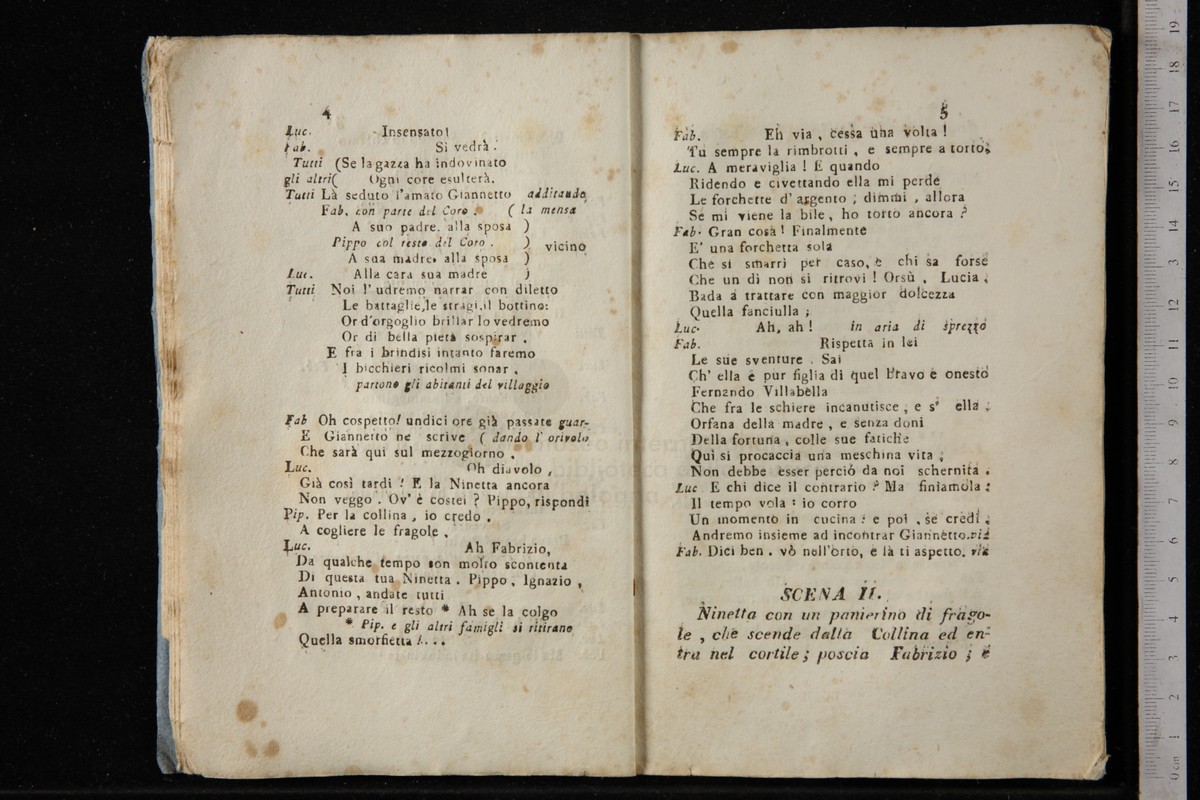 4
Luc. Insensato!
Fab. Si vedrà.
Tutti (Se la gazza ha indovinato
gli altri( Ogni core esulterà.
Tutti Là seduto l'amato Giannetto additando
Fab. con parte del Coro. ( la mensa
A suo padre. alla sposa )
Pippo col resto del Coro. ) vicino
A sua madre, alla sposa )
Luc. Alla cara sua madre )
Tutti Noi l'udremo narrar con diletto
Le battaglie, le stragi, il bottino:
Or d'orgoglio brillar lo vedremo
Or di bella pietà sospirar.
E fra i brindisi intanto faremo
I bicchieri ricolmi sonar,
partono gli abitanti del villaggio
Fab Oh cospetto! undici ore già passate guar-
E Giannetto ne scrive ( dando l'orivolo
Che sarà qui sul mezzogiorno.
Luc. Oh diavolo,
Già così tardi! E la Ninetta ancora
Non veggo. Ov' è costei? Pippo, rispondi
Pip. Per la collina, io credo,
A cogliere le fragole,
Luc. Ah Fabrizio,
Da qualche tempo son molto scontenta
Di questa tua Ninetta. Pippo, Ignazio,
Antonio, andate tutti
A preparare il resto * Ah se la colgo
* Pip. e gli altri famigli si ritirano
Quella smorfietta!...
5
Fab. Eh via, cessa una volta!
Tu sempre la rimbrotti, e sempre a torto;
Luc. A meraviglia! E quando
Ridendo e civettando ella mi perde
Le forchette d'argento; dimmi, allora
Se mi viene la bile, ho torto ancora?
Fab. Gran cosa! Finalmente
E' una forchetta sola
Che si smarrì per caso, e chi sa forse
Che un dì non si ritrovi! Orsù, Lucia,
Bada a trattare con maggior dolcezza
Quella fanciulla;
Luc. Ah, ah! in aria di sprezzo
Fab. Rispetta in lei
Le sue sventure. Sai
Ch' ella è pur figlia di quel bravo e onesto
Fernando Villabella
Che fra le schiere incanutisce, e s' ella,
Orfana della madre, e senza doni
Della fortuna, colle sue fatiche
Qui si procaccia una meschina vita;
Non debbe esser perciò da noi schernita.
Luc E chi dice il contrario? Ma finiamola:
Il tempo vola: io corro
Un momento in cucina: e poi, se credi,
Andremo insieme ad incontrar Giannetto. via
Fab. Dici ben. vò nell'orto, e là ti aspetto. via
SCENA II.
Ninetta con un panierino di frago-
le, che scende dalla Collina ed en-
tra nel cortile; poscia Fabrizio; e